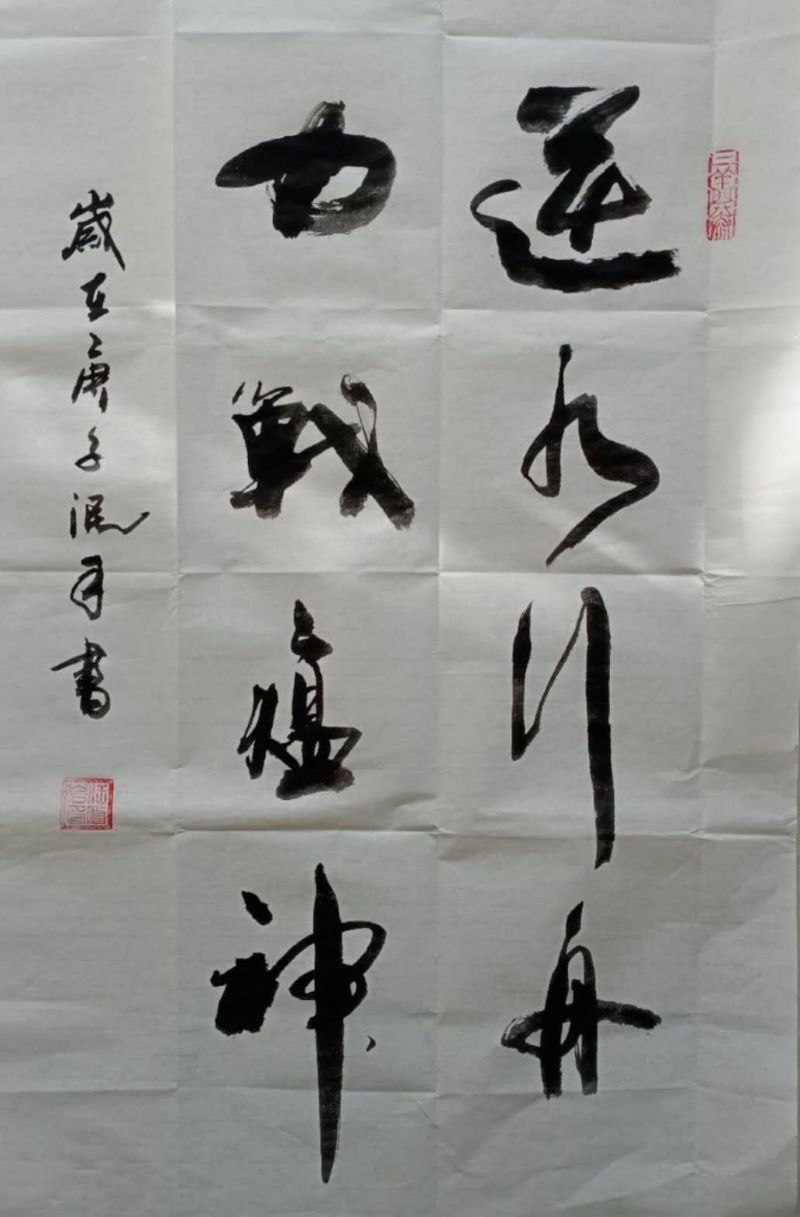 逆水行舟
力戰瘟神
歲在庚子河年書